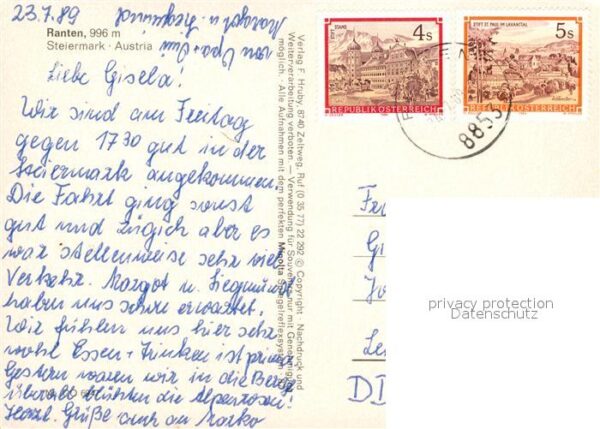 23.7.89
Margot u. Siegmund
von Opa + Omi
Ranten, 996 m
Steiermark · Austria
Liebe Gisela!
Wir sind am Freitag
gegen 17 30 gut in der
Steiermark angekommen.
Die Fahrt ging sonst
gut und zügig aber es
war stellenweise sehr viel
Verkehr. Margot u. Siegmund
haben uns schon erwartet.
Wir fühlen uns hier sehr
wohl Essen + Trinken ist prima
Gestern waren wir in die Berge
überall blühten die Alpenrosen
Herzl. Grüße auch an Marko
Verlag F. Hruby, 8740 Zeltweg, Ruf (0 35 77) 22 292 © Copyright · Nachdruck und
Weiterverarbeitung verboten. — Verwendung für Souvenirs nur mit Genehmigung
möglich. · Alle Aufnahmen mit dem perfekten Minolta Spiegelreflexsystem
STIFT STAMS
4 S
REPUBLIK ÖSTERREICH
STIFT ST. PAUL IM LAVANTTAL
5 S
REPUBLIK ÖSTERREICH
8853
privacy protection
Datenschutz
DD